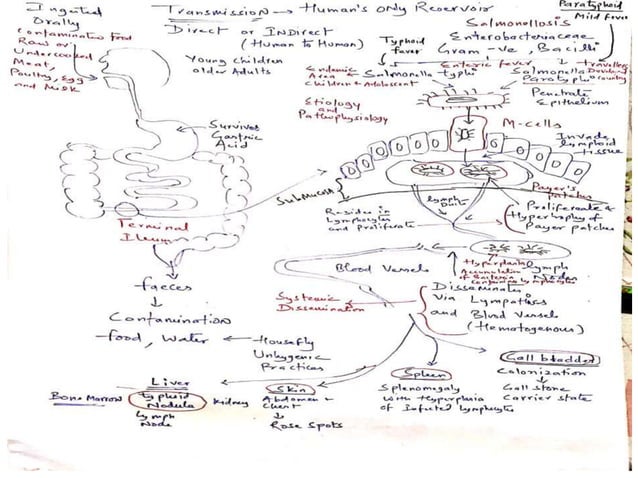 Ingested
Orally
Contaminated food
Raw or
Undercooked
Meat,
Poultry, Egg
and Milk
Transmission → Human's only Recervoir
Direct or INDirect
(Human to Human)
Young children
older Adults
Paratyphoid
Mild fever
Salmonellosis
Enterobacteriaceae
Gram -ve, Bacilli
Typhoid
fever
Enteric fever
travellers
Developed
country
Endemic
Area
Children & Adolescent
Salmonella typhi
Salmonella
Paratyphi
Etiology
and
Pathophysiology
Penetrate
Epithelium
M-cells
Invade
lymphoid
tissue
Survives
Gastric
Acid
Submucosa
Payer's
patches
lymph
Duct
Resides in
lymphocytes
and Proliferate
Proliferate &
Hypertrophy of
Payer patches
Terminal
Ileum
Blood Vessels
Hyperplasia
Accumulation
of Bacteria
lymph
Node
faeces
Contamination
food, Water
Housefly
Unhygenic
Practices
Systemic
Dissemination
Disseminate
via Lympatics
and Blood Vessels
(Hematogenous)
Liver
Bone Marrow
typhoid
Nodule
lymph
Node
Kidney
Skin
Abdomen &
Chest
Rose Spots
Spleen
Splenomegaly
with Hyperplasia
of Infected lymphocytes
Gall bladder
Colonization
Gall stone
Carrier state